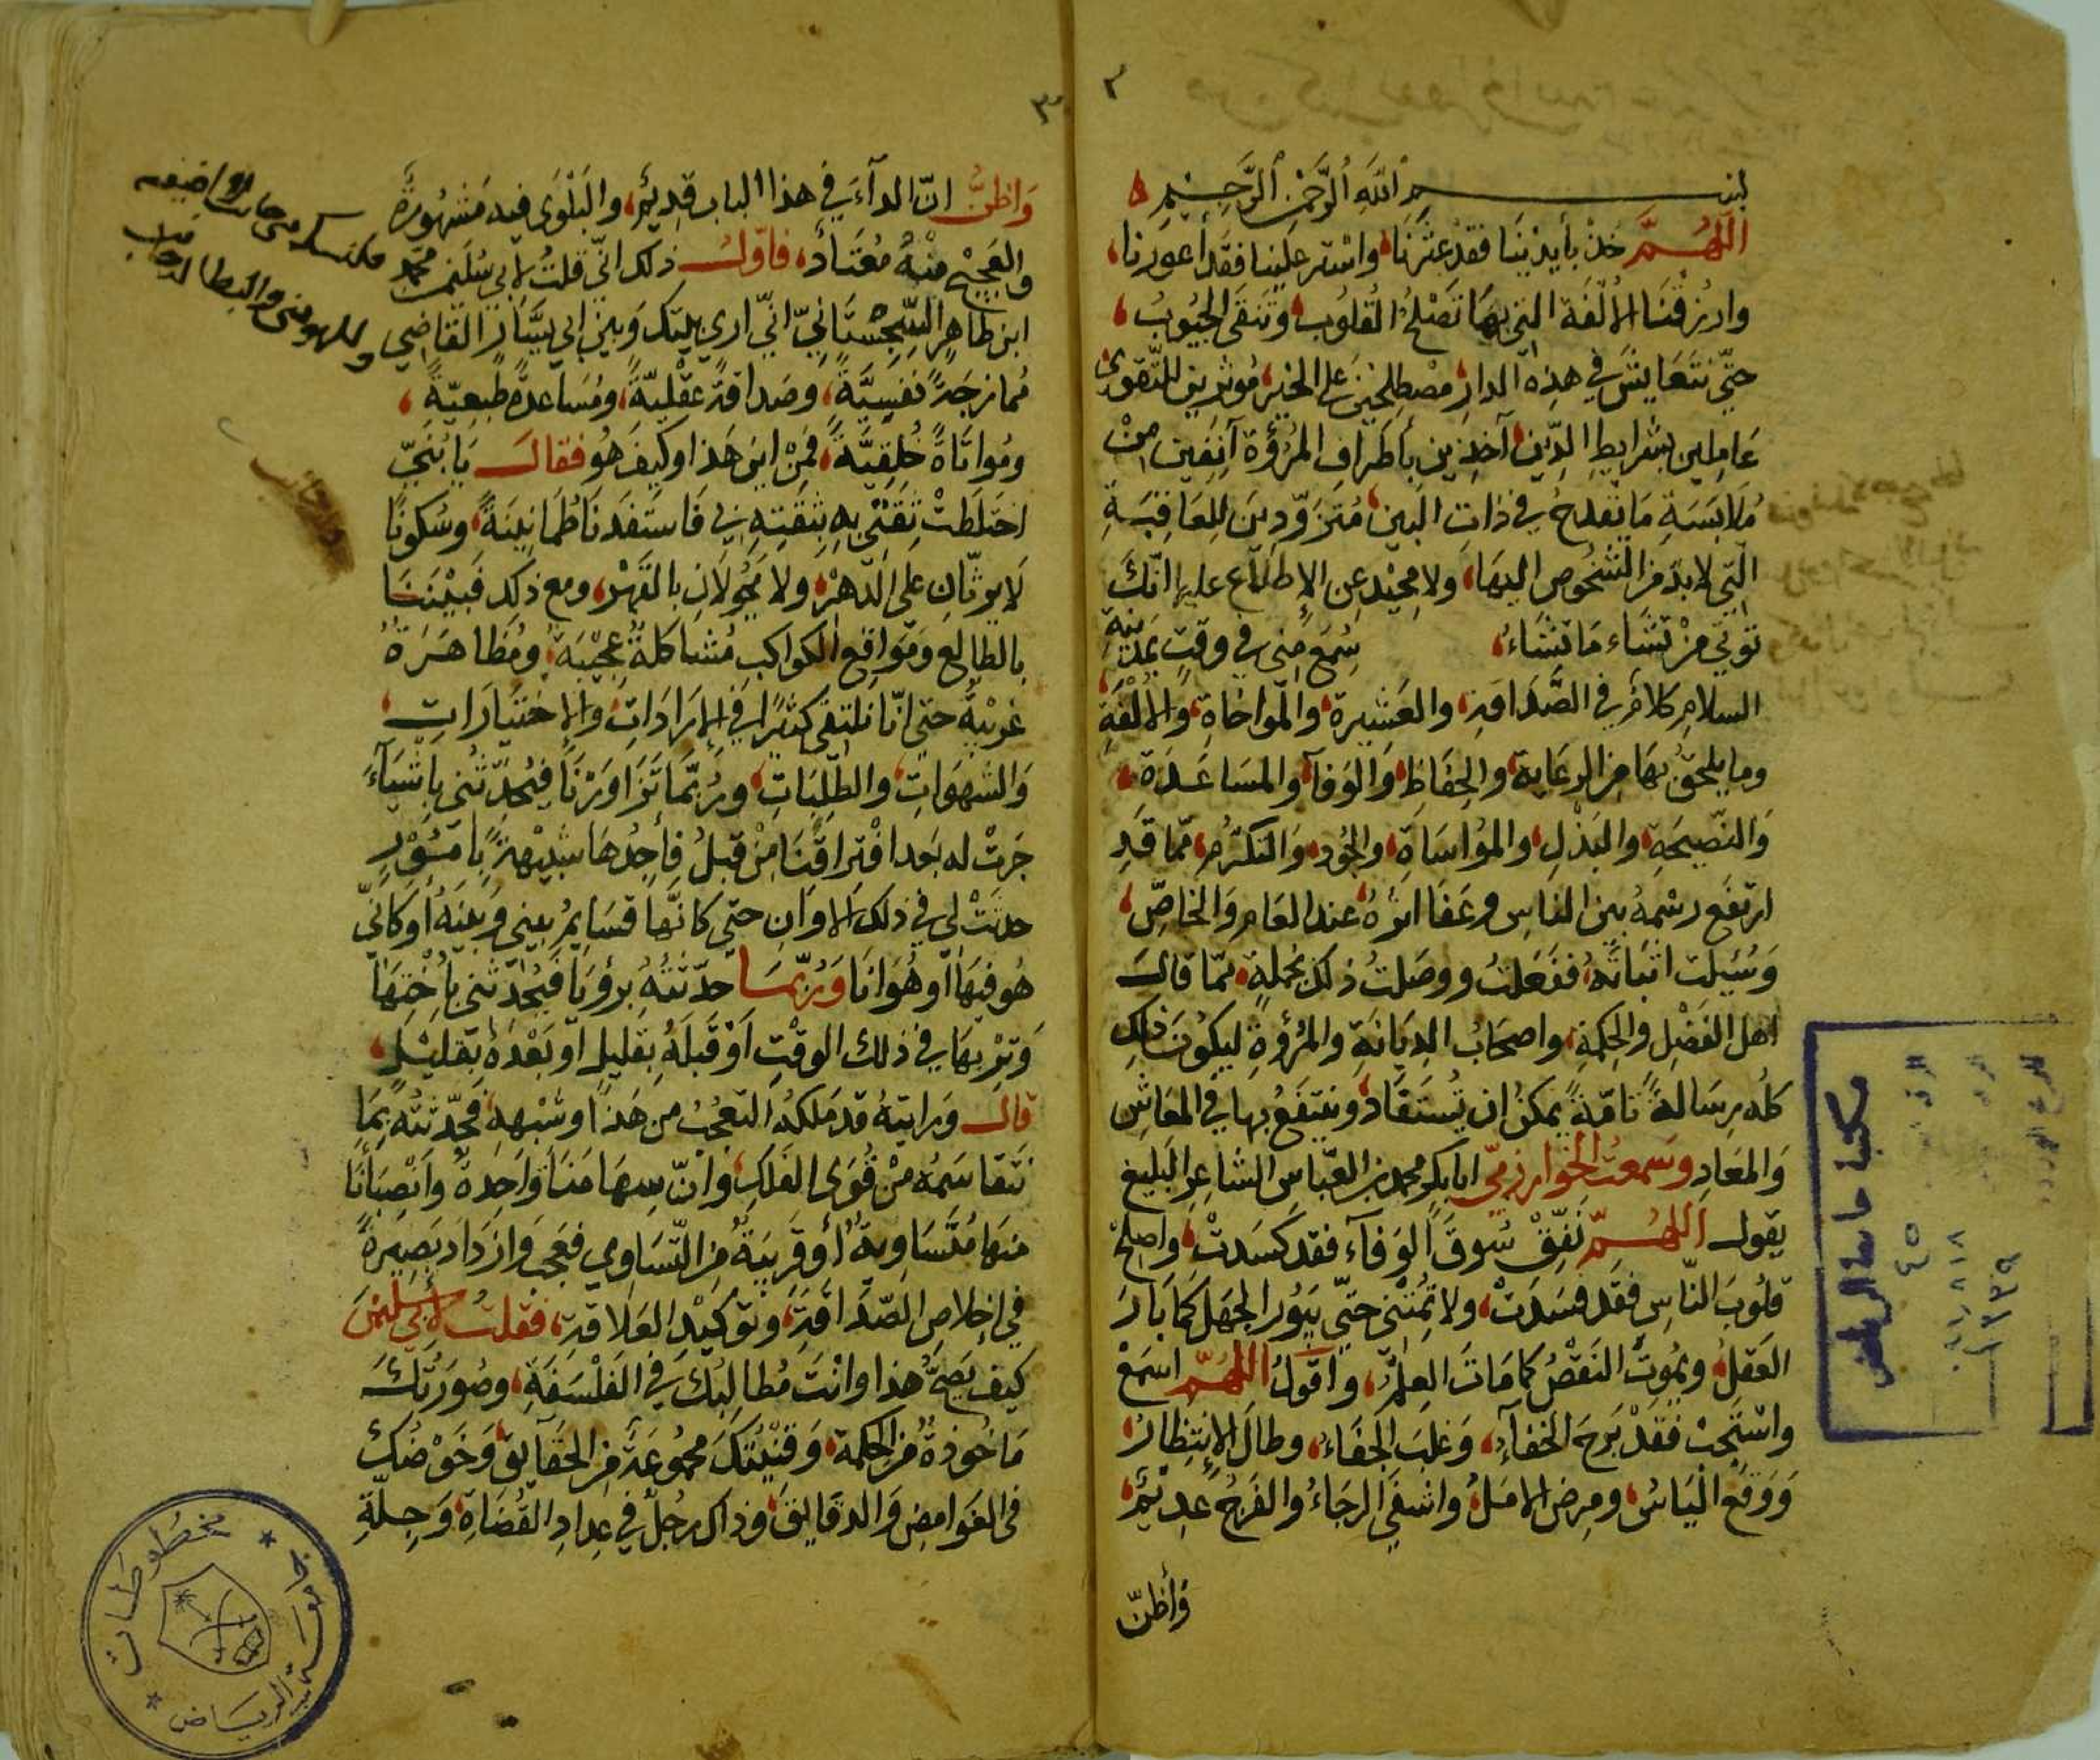 ٢
بسم الله الرحمن الرحيم
اللهم خذ بأيدينا فقد عثرنا، واستر علينا فقد أعورنا،
وارزقنا الألفة التي بها تصلح القلوب، وتنقى الجيوب،
حتى نتعايش في هذه الدار مصطلحين على الخير، موثرين للتقوى،
عاملين بشرايط الدين، آخذين بأطراف المروة آنفين من
ملابسة ما يقدح في ذات البين، متزودين للعاقبة
التي لا بد من الشخوص اليها، ولا محيد عن الاطلاع عليها انك
توتي من تشاء ما تشاء، سمع مني في وقت بمدينة
السلام كلام في الصداقة، والعشيرة، والمواخاة، والالفة،
وما يلحق بها من الرعاية، والحفاظ، والوفآ، والمساعدة،
والنصيحة، والبذل، والمؤاساة، والجود، والتكرم، مما قد
ارتفع رسمه بين الناس وعفا اثره، عند العام والخاص،
وسيلت اثباته، ففعلت ووصلت ذلك بجملة، مما قال
اهل الفضل والحكمة، واصحاب الديانة والمروة ليكون ذلك
كله رسالة تامة يمكن ان تستفاد، وينتفع بها في المعاش
والمعاد وسمعت الخوارزمي ابا بكر محمد بن العباس الشاعر البليغ
يقول اللهم نفق سوق الوفآء فقد كسدت، واصلح
قلوب الناس فقد فسدت، ولا تمتني حتى يبور الجهل كما بار
العقل، ويموت النقص كما مات العلم، واقول اللهم اسمع
واستجب فقد برح الخفآء، وغلب الجفاء، وطال الانتظار،
ووقع الياس، ومرض الامل، واشفى الرجاء، والفرج عديم،
وأظن
٣
واظن ان الدآء في هذا الباب قديم، والبلوى فيه مشهورة
والعجيج منه معتاد، فاول ذلك اني قلت لابي سليمن محمد
ابن طاهر السجستاني اني ارى بينك وبين ابي سيار القاضي
ممازجة نفسية، وصداقة عقلية، ومساعدة طبيعية،
ومواتاة خلقية، فمن اين هذا وكيف هو فقال يا بني
اختلطت ثقتي به بثقته بي فاستفدنا طمانينة، وسكونا
لا يرثان على الدهر، ولا يحولان بالقهر، ومع ذلك فبيننا
بالطالع ومواقع الكواكب مشاكلة عجيبة، ومظاهرة
غريبة حتى انا نلتقي كثيرا في الارادات، والاختيارات،
والشهوات، والطلبات، وربما تزاورنا فيحدثني باشيآء
جرت له بعد افتراقنا من قبل فأجدها شبيهة بامور
حدثت لي في ذلك الاوان حتى كانها قسايم بيني وبينه او كاني
هو فيها او هو انا وربما حدثته برؤيا فيحدثني باختها
وتر بها في ذلك الوقت او قبله بقليل او بعده بقليل،
قال ورايته قد ملكه التعجب من هذا وشبهه، فحدثته بما
نتقاسمه من قوى الفلك، وان سهامنا واحدة وانصبآنا
منها متساوية، او قريبة من التساوي فعجب وازداد بصيرة
في اخلاص الصداقة، وتوكيد العلاقة، فقلت لأبي سليمن
كيف يصح هذا وانت مطالبك في الفلسفة، وصورتك
ماخوذة من الحكمة، وقنيتك مجموعة من الحقايق، وخوضك
في الغوامض والدقايق، وذاك رجل في عداد القضاة، وجلة
مكتبة جامعة الرياض
مخطوطات
جامعة الرياض